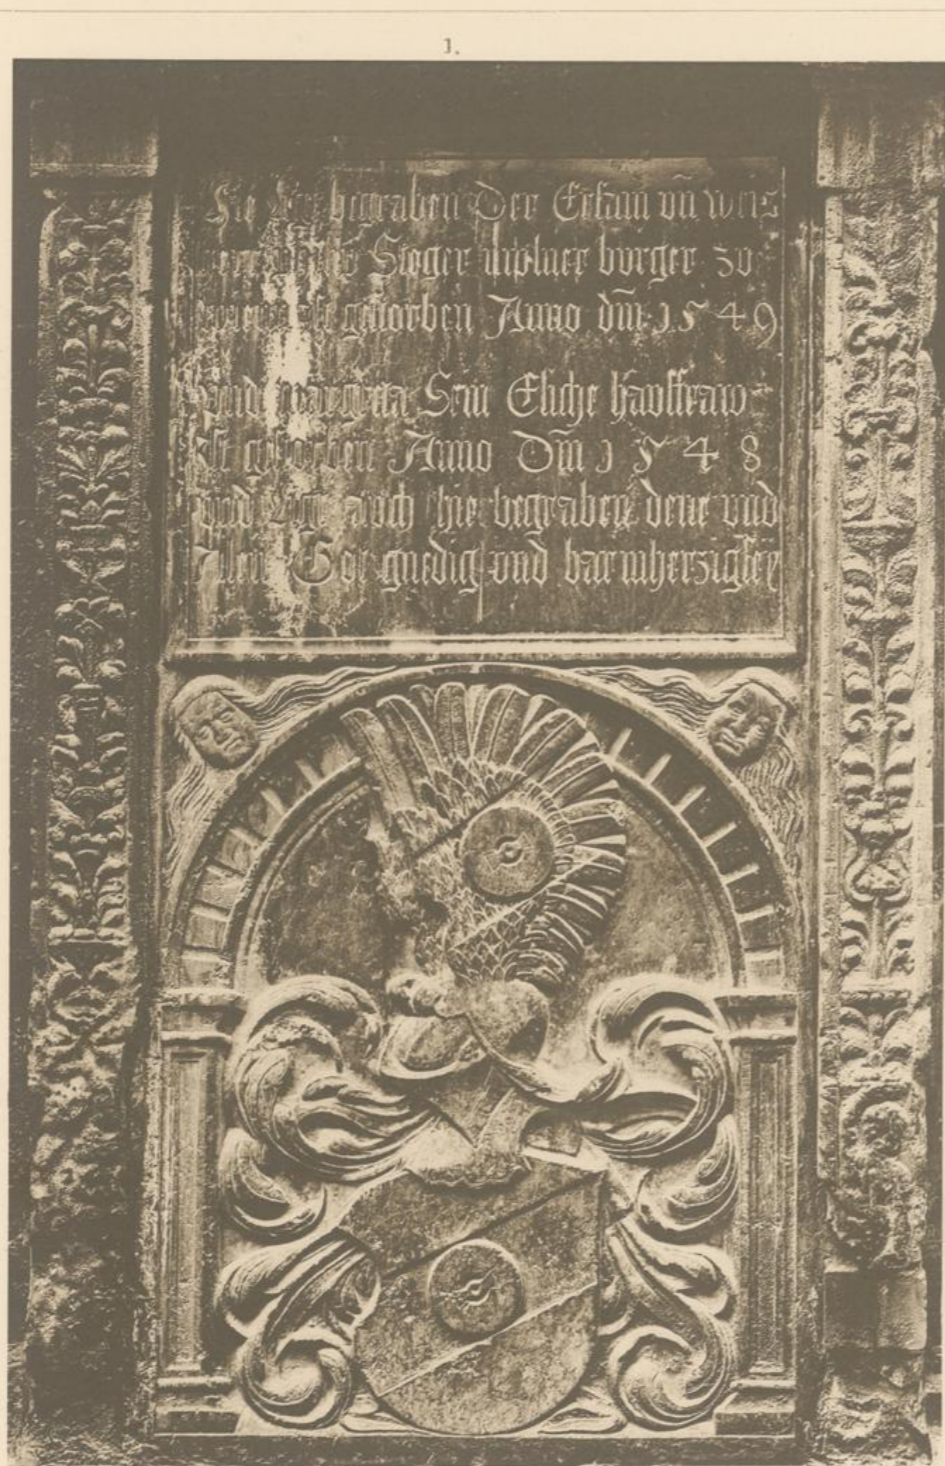 1.
Hie begraben Der Ersam vn̄ weis
Sioger burger zo
gestorben Anno dm̄ 1549
vnd Sein Eliche havsfraw
ist gestorben Anno Dm̄ 1548
vnd avch hie begraben dene vnd
allen Got gnedig vnd barmherzig sey